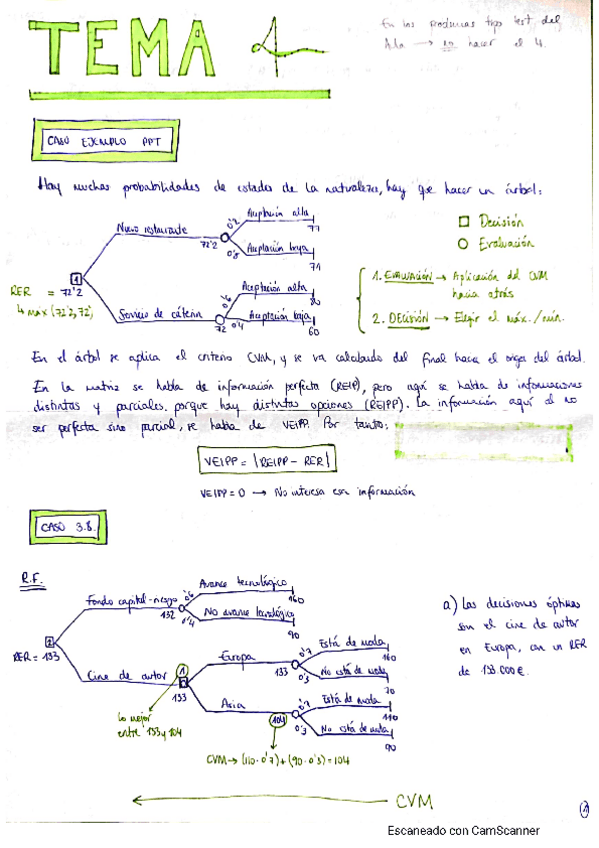 TEMA 4
En los problemas tipo test del
Aula → no hacer el 4.
CASO EJEMPLO PPT
Hay muchas probabilidades de estados de la naturaleza, hay que hacer un árbol:
Nuevo restaurante
72'2
0'2
Aceptación alta
77
0'8
Aceptación baja
71
1
RER = 72'2
↳ máx (72'2, 72)
Servicio de cátering
72
0'6
Aceptación alta
80
0'4
Aceptación baja
60
Decisión
Evaluación
1. EVALUACIÓN → Aplicación del CVM
hacia atrás
2. DECISIÓN → Elegir el máx./mín.
En el árbol se aplica el criterio CVM, y se va calculando del final hacia el origen del árbol.
En la matriz se habla de información perfecta (REIP), pero aquí se habla de informaciones
distintas y parciales, porque hay distintas opciones (REIPP). La información aquí al no
ser perfecta sino parcial, se habla de VEIPP. Por tanto:
VEIPP = |REIPP - RER|
VEIPP = 0 → No interesa esa información
CASO 3.8.
R.F.
Fondo capital-riesgo
132
0'6
Avance tecnológico
160
0'4
No avance tecnológico
90
2
RER = 133
Cine de autor
1
133
Lo mejor
entre 133 y 104
Europa
133
0'7
Está de moda
160
0'3
No está de moda
70
Asia
104
0'7
Está de moda
110
0'3
No está de moda
90
CVM → (110·0'7) + (90·0'3) = 104
a) Las decisiones óptimas
son el cine de autor
en Europa, con un RER
de 133.000€.
← CVM
1
Escaneado con CamScanner